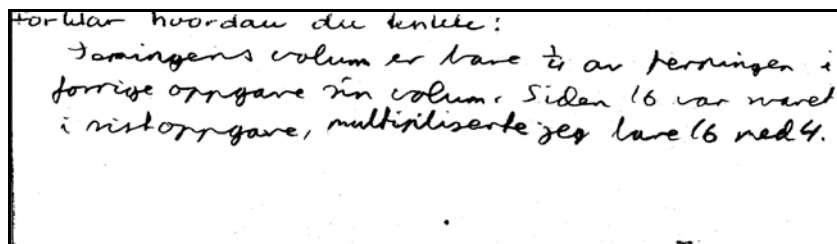 Forklar hvordan du tenkte:
Terningens volum er bare 1/4 av terningen i
forrige oppgave sin volum. Siden 16 var svaret
i sist oppgave, multipliserte jeg bare 16 med 4.